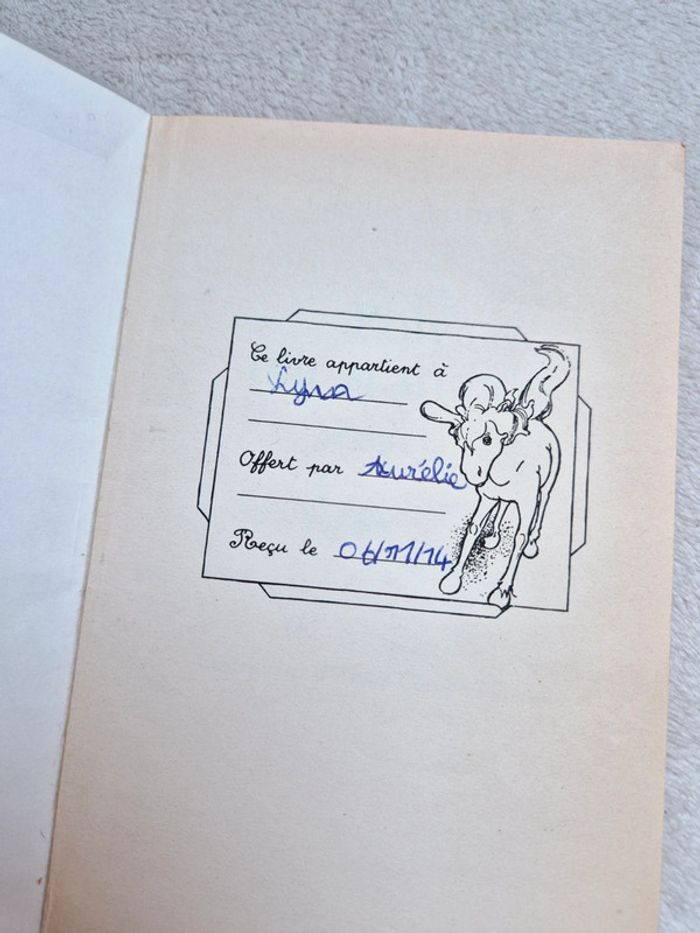 Ce livre appartient à
Lyna
Offert par Aurélie
Reçu le 06/11/14